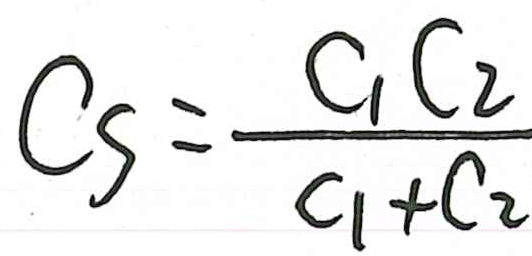 Cs = \frac{C_1 C_2}{C_1 + C_2}